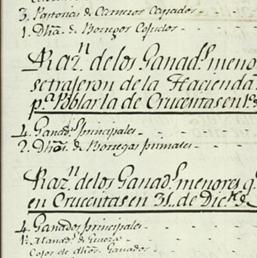 3. Partorias de Carneros Capados
1. Dha. de Borregos Cojudos
Raz.n de los Ganad.s meno
se trajeron de la Hacienda
p.a Poblar la de Crucentas en 1.o
4. Ganad.s principales
2. Dhas. de Borregas primales
Raz.n de los Ganad.s menores q.
en Crucentas en 31. de Dic.e
4. Ganados principales
1. Manad.s de
de dhos. Ganados